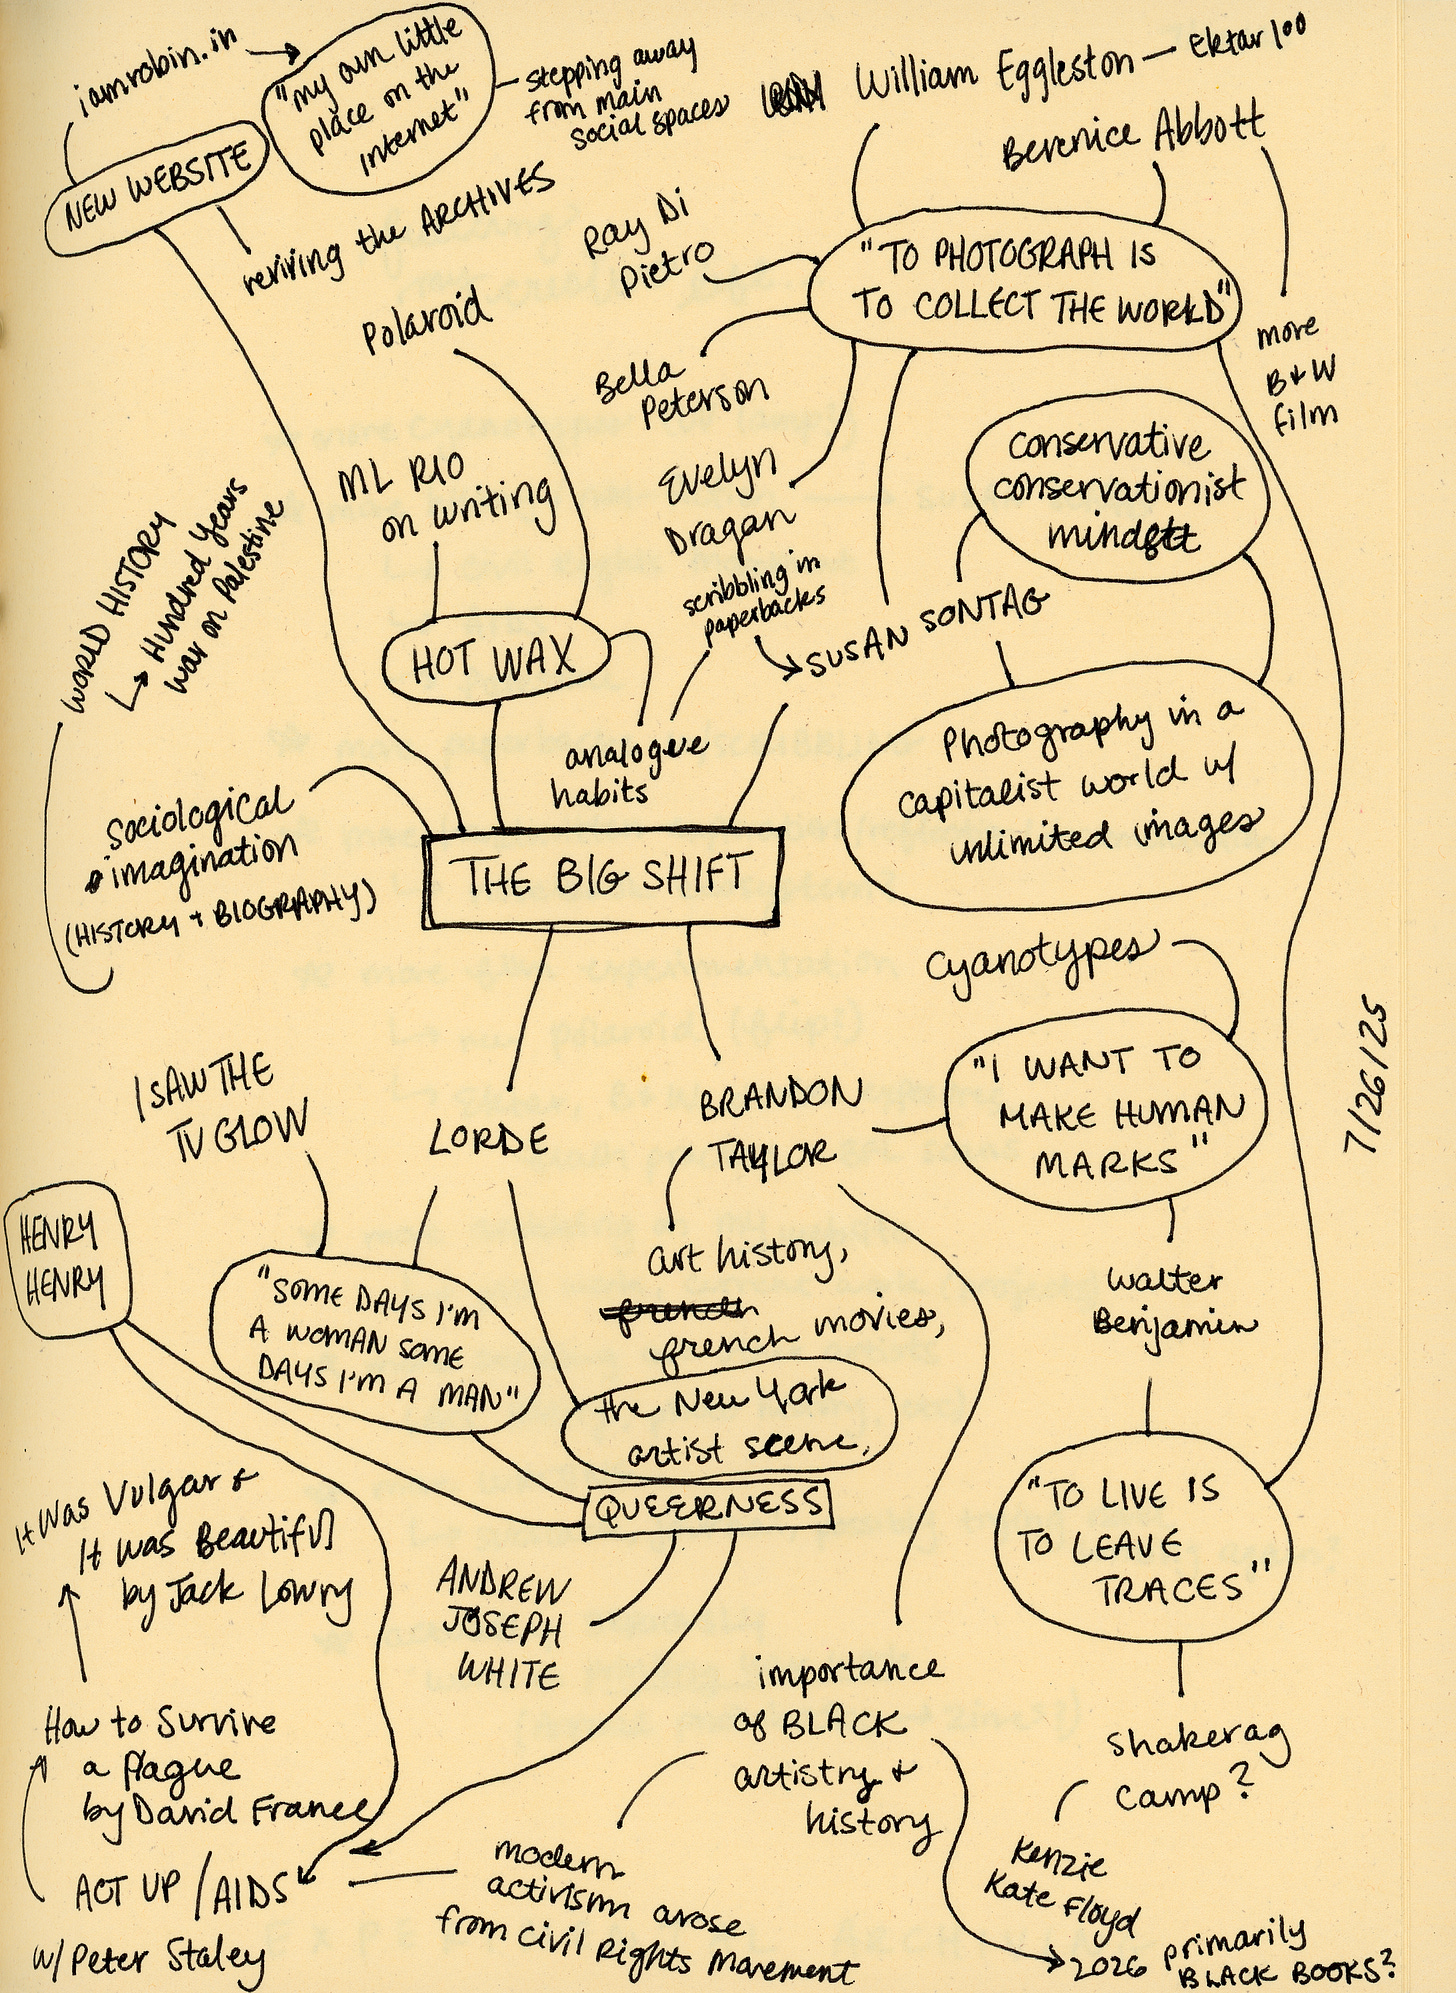 iamrobin.in
"my own little
place on the
internet"
stepping away
from main
social spaces
William Eggleston — Ektar 100
Berenice Abbott
NEW WEBSITE
reviving the ARCHIVES
Ray Di
Pietro
"TO PHOTOGRAPH IS
TO COLLECT THE WORLD"
more
B+W
film
Polaroid
Bella
Peterson
conservative
conservationist
mindset
ML RIO
on writing
Evelyn
Dragan
scribbling in
paperbacks
WORLD HISTORY
↳ Hundred Years
war on Palestine
SUSAN SONTAG
HOT WAX
analogue
habits
Photography in a
capitalist world w/
unlimited images
Sociological
imagination
(HISTORY + BIOGRAPHY)
THE BIG SHIFT
Cyanotypes
7/26/25
I SAW THE
TV GLOW
LORDE
BRANDON
TAYLOR
"I WANT TO
MAKE HUMAN
MARKS"
HENRY
HENRY
"SOME DAYS I'M
A WOMAN SOME
DAYS I'M A MAN"
art history,
french
french movies,
the New York
artist scene,
Walter
Benjamin
QUEERNESS
"TO LIVE IS
TO LEAVE
TRACES"
It was Vulgar +
It was Beautiful
by Jack Lowry
ANDREW
JOSEPH
WHITE
importance
of BLACK
artistry +
history
Shakerag
Camp?
How to Survive
a Plague
by David France
Kenzie
Kate Floyd
ACT UP / AIDS
w/ Peter Staley
modern
activism arose
from Civil Rights Movement
2026 primarily
BLACK BOOKS?